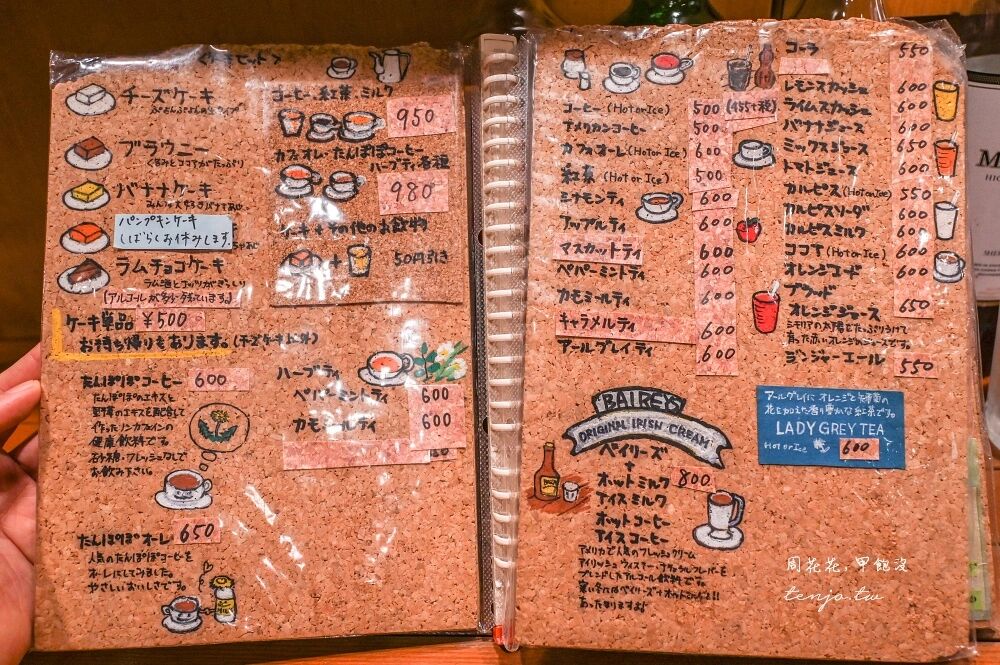 チーズケーキ
ブラウニー
くるみとココアがたっぷり
バナナケーキ
パンプキンケーキ
しばらくお休みします。
ラムチョコケーキ
(アルコールが多少残ています。)
ケーキ単品 ¥500
お持ち帰りもあります。(チーズケーキ以外)
たんぽぽコーヒー 600
たんぽぽのエキスと
野草のエキスを配合して
作ったノンカフェインの
健康飲料です。
砂糖・フレッシュなしで
お飲み下さい。
たんぽぽオーレ 650
人気のたんぽぽコーヒーを
オーレにしてみました。
やさしいおいしさです。
コーヒー 紅茶 ミルク
950
カフェオーレ・たんぽぽコーヒー
ハーブティ各種
980
ケーキ+その他のお飲物
50円引き
ハーブティ
ペパーミントティ 600
カモミールティ 600
コーヒー (Hot or Ice) 500 (455+税)
アメリカンコーヒー 500
カフェオーレ (Hot or Ice) 600
紅茶 (Hot or Ice) 500
シナモンティ 600
アップルティ 600
マスカットティ 600
ペパーミントティ 600
カモミールティ 600
キャラメルティ 600
アールグレイティ 600
BAILEYS
ORIGINAL IRISH CREAM
ベイリーズ
+
ホットミルク 800
アイスミルク
ホットコーヒー
アイスコーヒー
アメリカで人気のフレッシュクリーム
アイリッシュウイスキー・ナチュラルフレーバーを
ブレンドしたアルコール飲料です。
寒い冬にはベイリーズ+ホットミルクで!!
あったまりますよ♪
コーラ 550
レモンスカッシュ 600
ライムスカッシュ 600
バナナジュース 600
ミックスジュース 650
トマトジュース 600
カルピス (Hot or Ice) 550
カルピスソーダ 600
カルピスミルク 600
ココア (Hot or Ice) 600
オレンジエード 600
ブラッド
オレンジジュース 650
シチリアの太陽をたっぷりうけて
育った赤いオレンジのジュースです。
ジンジャーエール 550
アールグレイにオレンジと矢車菊の
花を加えた香り豊かな紅茶です。
LADY GREY TEA
Hot or Ice 600
周花花,甲飽沒
tenjo.tw